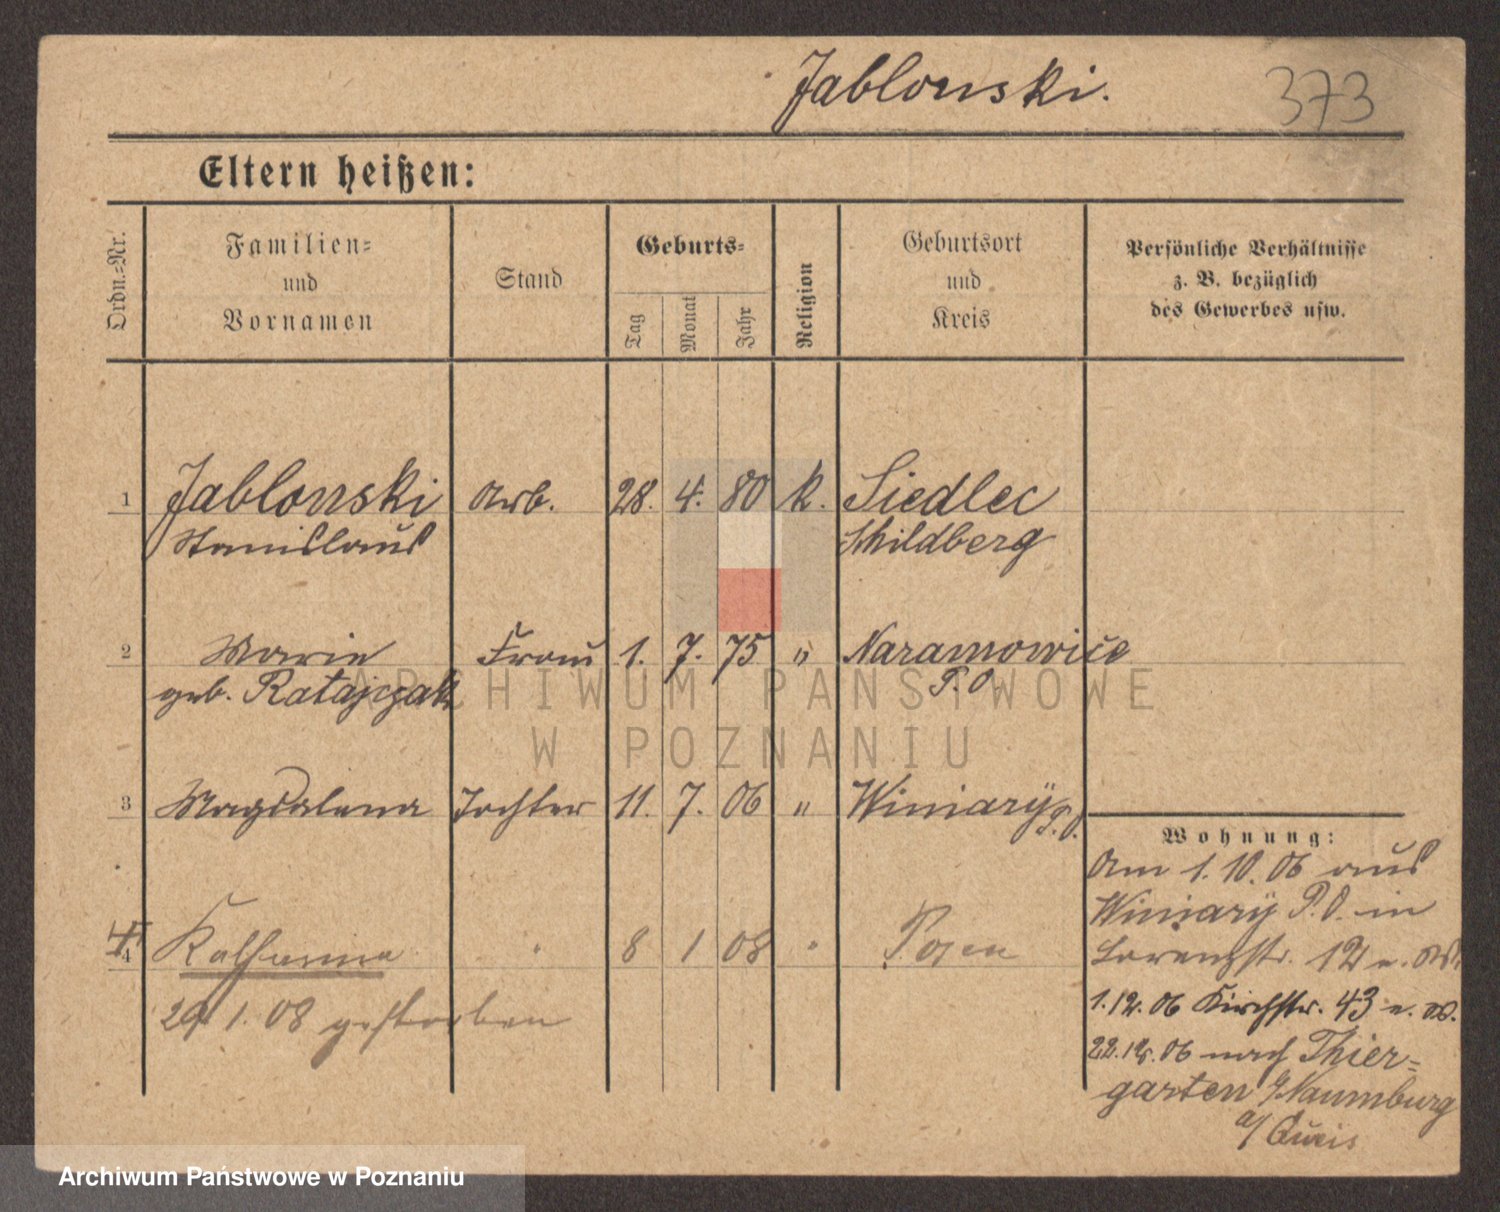 Jablonski.
373
Eltern heißen:
Ordn.-Nr.
Familien-
und
Vornamen
Stand
Geburts-
Tag
Monat
Jahr
Religion
Geburtsort
und
Kreis
Persönliche Verhältnisse
z. B. bezüglich
des Gewerbes usw.
1 Jablonski Arb. 28. 4. 80 k. Siedlec
Stanislaus Schildberg
2 Marie Frau 1. 7. 75 " Naramowice
geb. Ratajczak P. O
3 Magdalena Tochter 11. 7. 06 " Winiary P. O.
4 Katharina " 8 1 08 " Posen
29. 1. 08 gestorben
Wohnung:
Am 1. 10. 06 aus
Winiary P. O. in
Lorenzstr. 12 e. W.
1. 12. 06 Kirchstr. 43 e. W.
22. 12. 06 nach Thier-
garten Naumburg
a/ Queis
ARCHIWUM PAŃSTWOWE
W POZNANIU
Archiwum Państwowe w Poznaniu